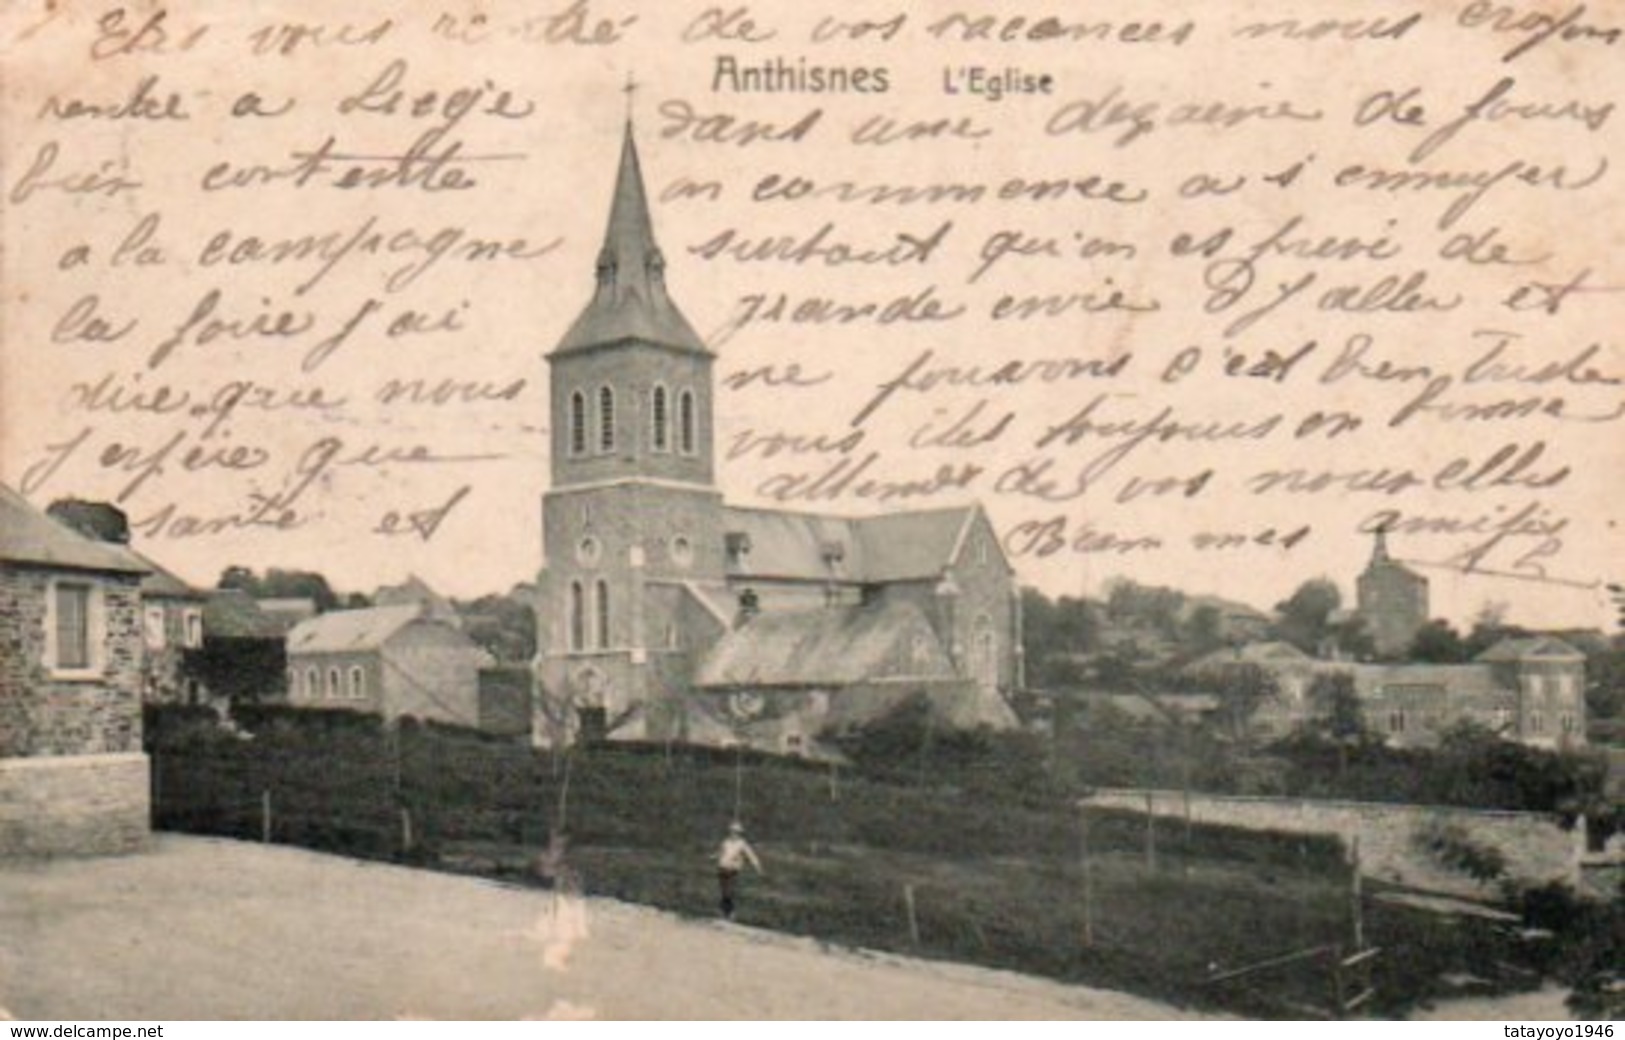 Etes vous rentré de vos vacances nous croyons
Anthisnes L'Eglise
rentré a Liege dans une dezaine de jours
bien contente on commence a s ennuyer
a la campagne surtout qu'on et privé de
la foire j'ai grande envie d'y aller et
dire que nous ne pouvons c'est bien triste
j espère que vous êtes toujours en bonne
santé et attend de vos nouvelles
Bien mes amitiés
www.delcampe.net
tatayoyo1946